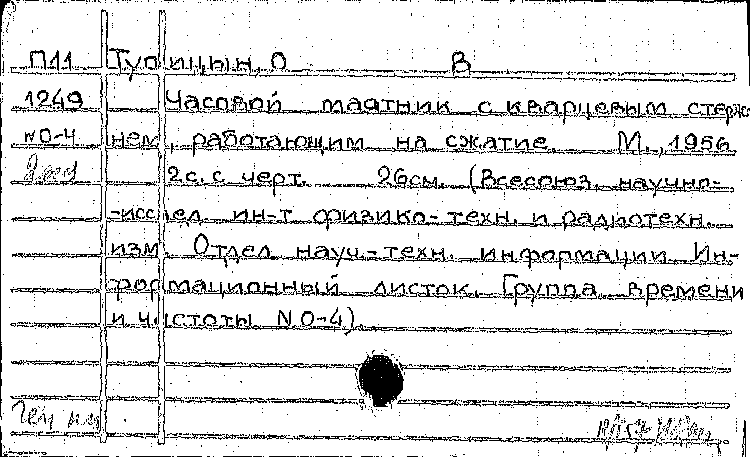 П11 Тупицын, О В
1249 Часовой маятник с кварцевым стерж-
N0-4 нем, работающим на сжатие. М., 1956
2с. с черт. 26см. (Всесоюз. научно-
-исслед. ин-т физико-техн. и радиотехн.
изм. Отдел науч.-техн. информации. Ин-
формационный листок. Группа времени
и частоты N 0-4).